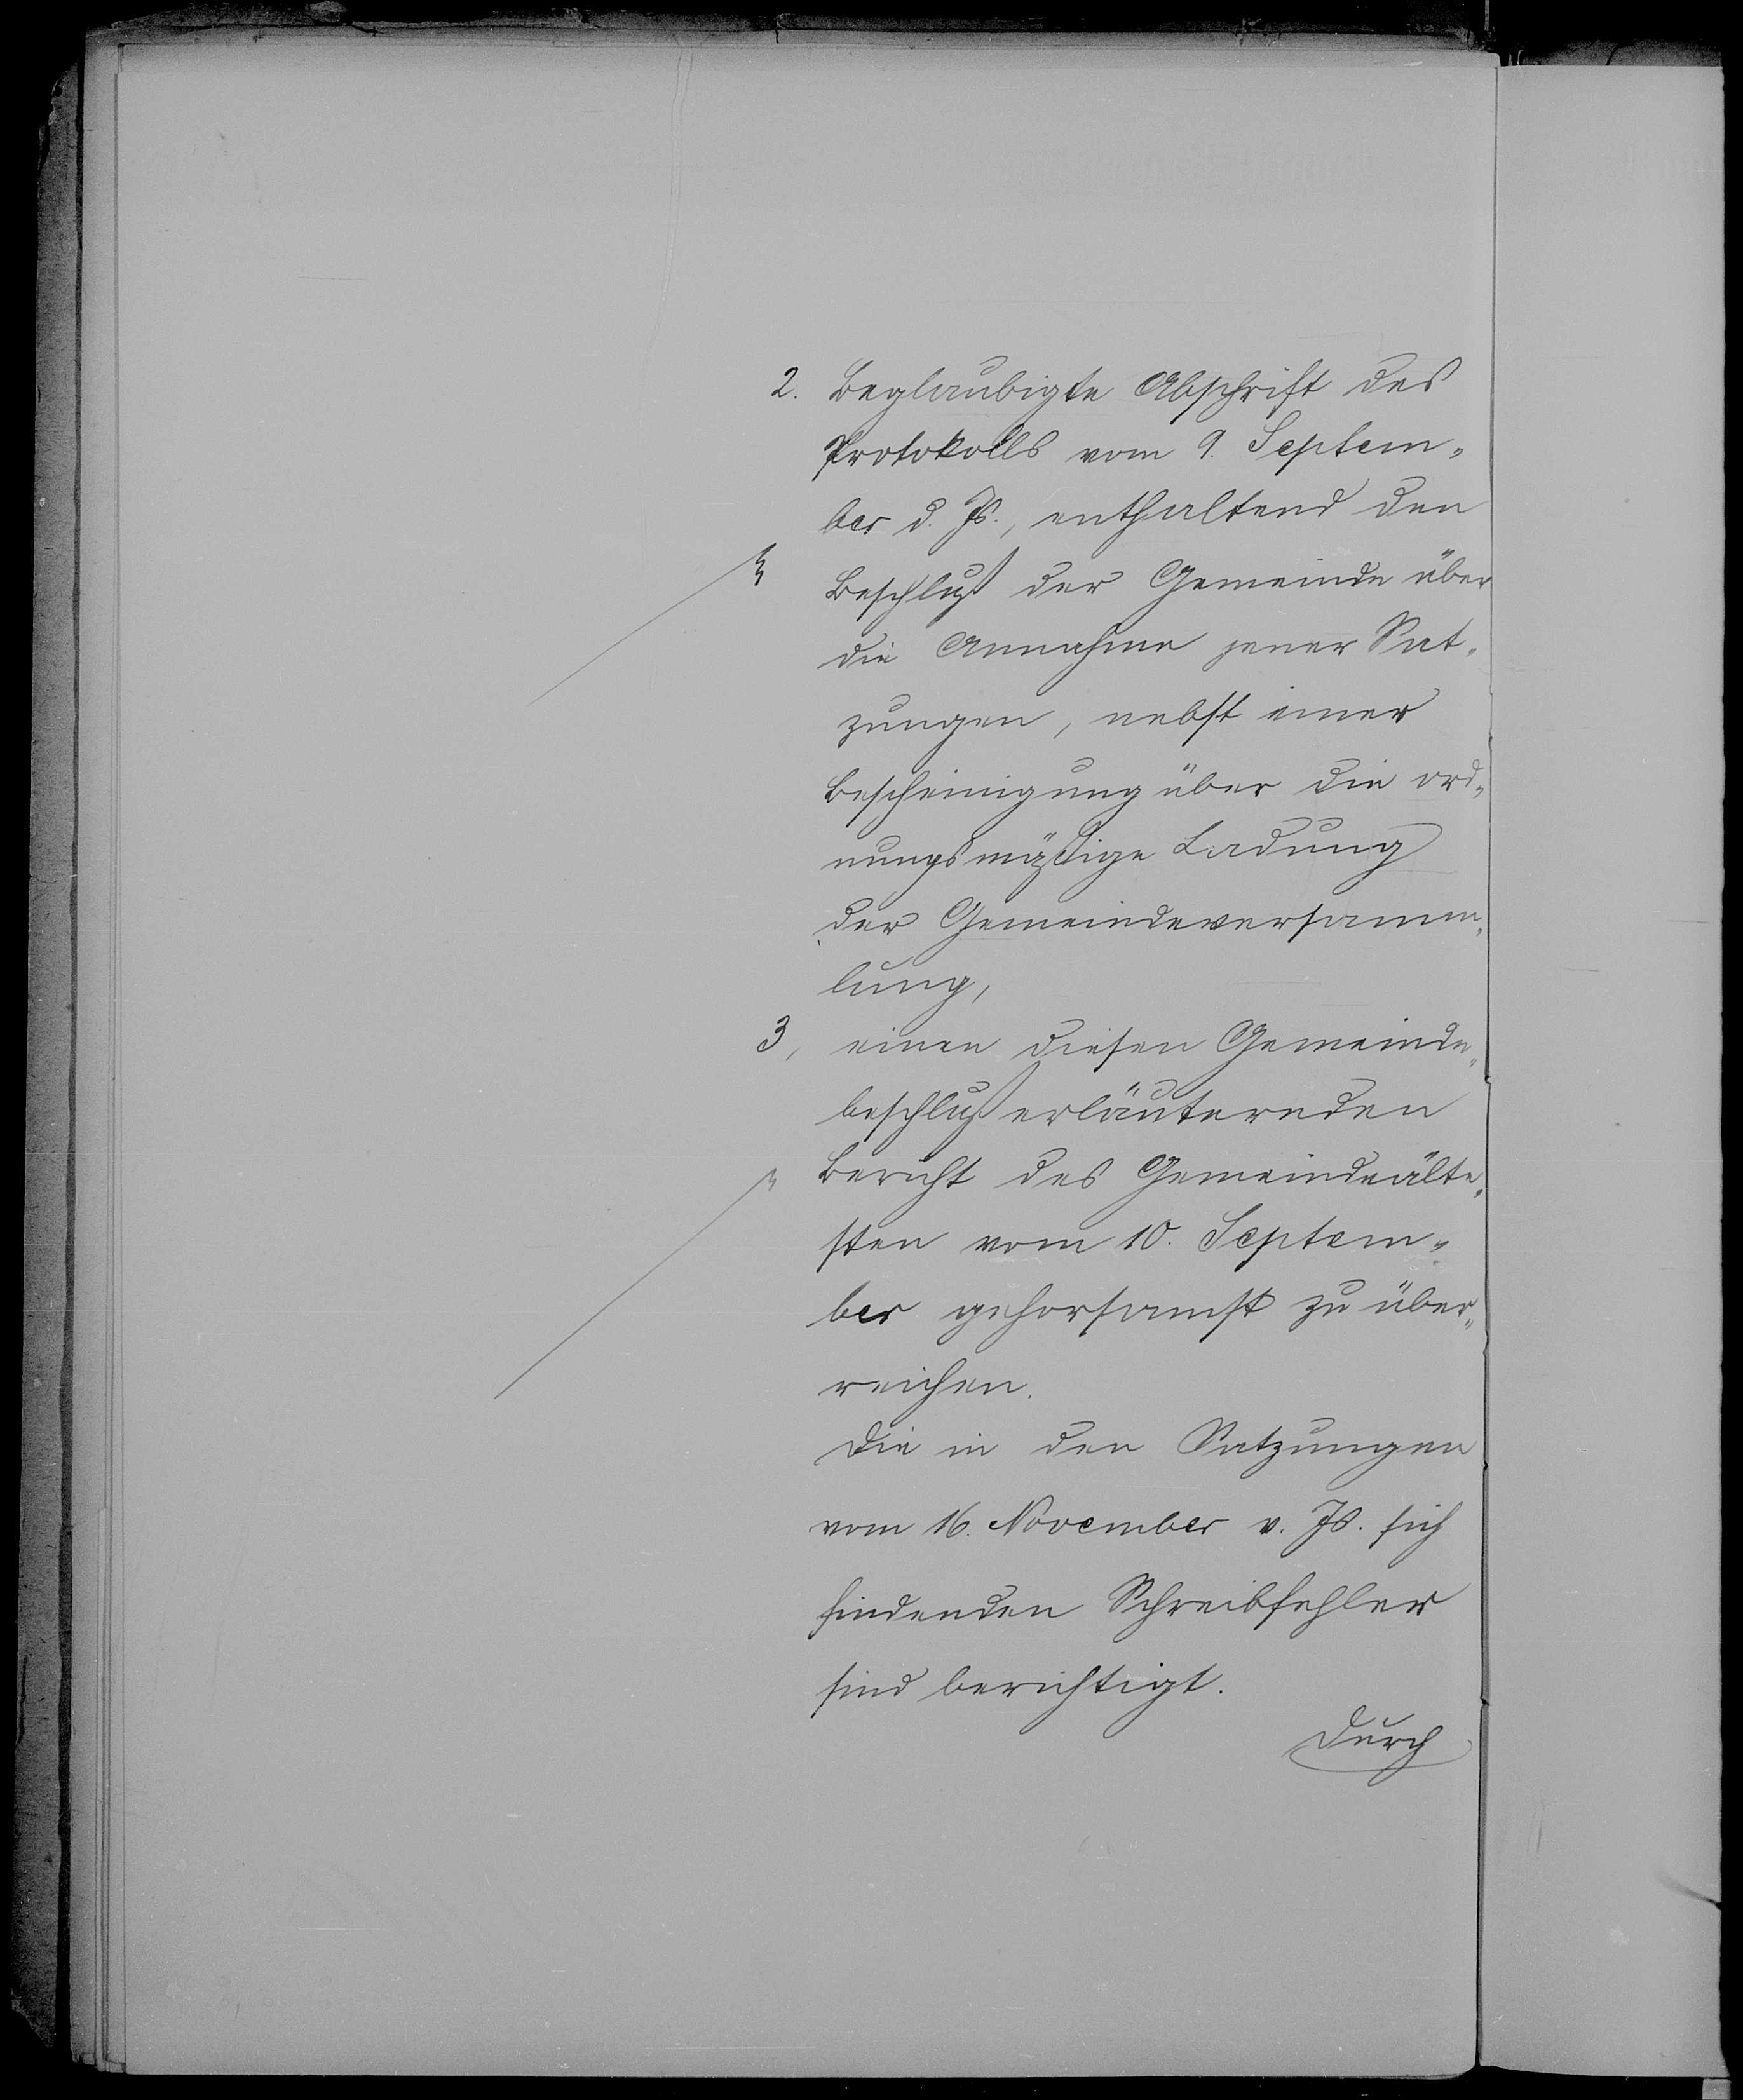 2. Beglaubigte Abschrift des
Protokolls vom 9. Septem„
ber d. Js., enthaltend den
Beschluß der Gemeinde über
die Annahme jener Sat„
zungen, nebst einer
Bescheinigung über die ord„
nungsmäßige Ladung
der Gemeindeversamm„
lung,
3, einen diesen Gemeinde„
beschluß erläuternden
Bericht des Gemeindeälte„
sten vom 10. Septem„
ber gehorsamst zu über„
reichen.
Die in den Satzungen
vom 16. November v. Js. sich
findenden Schreibfehler
sind berichtigt.
Durch